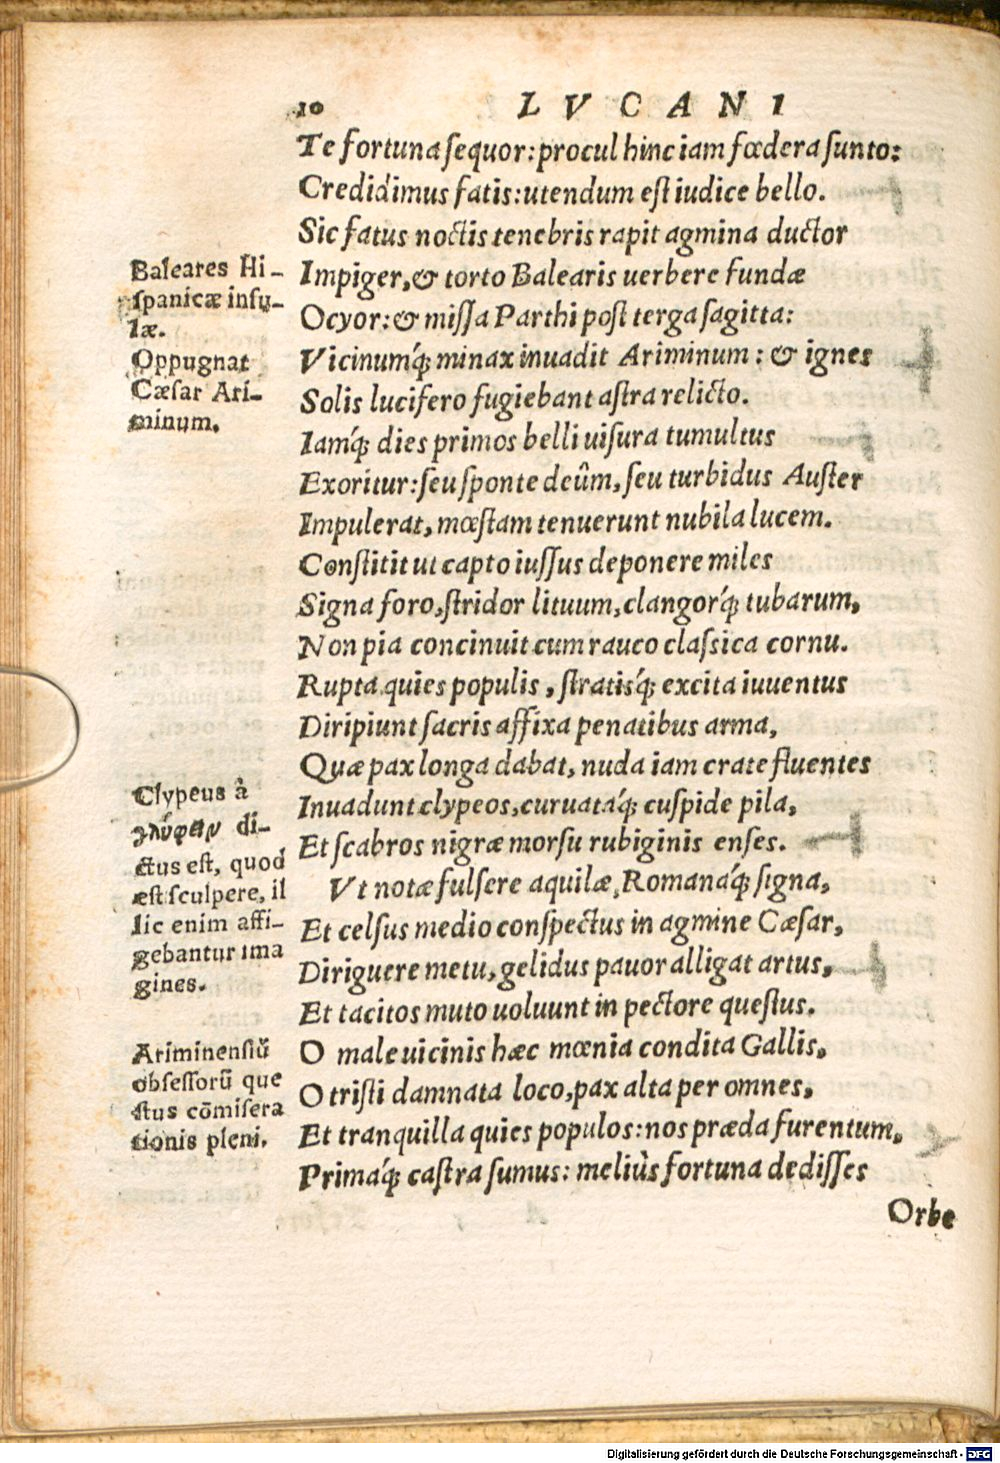 10 LVCANI
Te fortuna sequor: procul hinc iam fœdera sunto:
Credidimus fatis: utendum est iudice bello.
Sic fatus noctis tenebris rapit agmina ductor
Impiger, & torto Balearis uerbere fundæ
Ocyor: & missa Parthi post terga sagitta:
Vicinumq́; minax inuadit Ariminum: & ignes
Solis lucifero fugiebant astra relicto.
Iamq́; dies primos belli uisura tumultus
Exoritur: seu sponte deûm, seu turbidus Auster
Impulerat, mœstam tenuerunt nubila lucem.
Constitit ut capto iussus deponere miles
Signa foro, stridor lituum, clangorq́; tubarum,
Non pia concinuit cum rauco classica cornu.
Rupta quies populis, stratisq́; excita iuuentus
Diripiunt sacris affixa penatibus arma,
Quæ pax longa dabat, nuda iam crate fluentes
Inuadunt clypeos, curuataq́; cuspide pila,
Et scabros nigræ morsu rubiginis enses.
Vt notæ fulsere aquilæ, Romanaq́; signa,
Et celsus medio conspectus in agmine Cæsar,
Diriguere metu, gelidus pauor alligat artus,
Et tacitos muto uoluunt in pectore questus.
O male uicinis hæc mœnia condita Gallis,
O tristi damnata loco, pax alta per omnes,
Et tranquilla quies populos: nos præda furentum,
Primaq́; castra sumus: meliùs fortuna dedisses
Orbe
Baleares Hi-
spanicæ insu-
læ.
Oppugnat
Cæsar Ari-
minum.
Clypeus à
γλύφειν di-
ctus est, quod
est sculpere, il
lic enim affi-
gebantur ima
gines.
Ariminensiū
obsessorū que
stus cōmisera
tionis pleni.
Digitalisierung gefördert durch die Deutsche Forschungsgemeinschaft - DFG